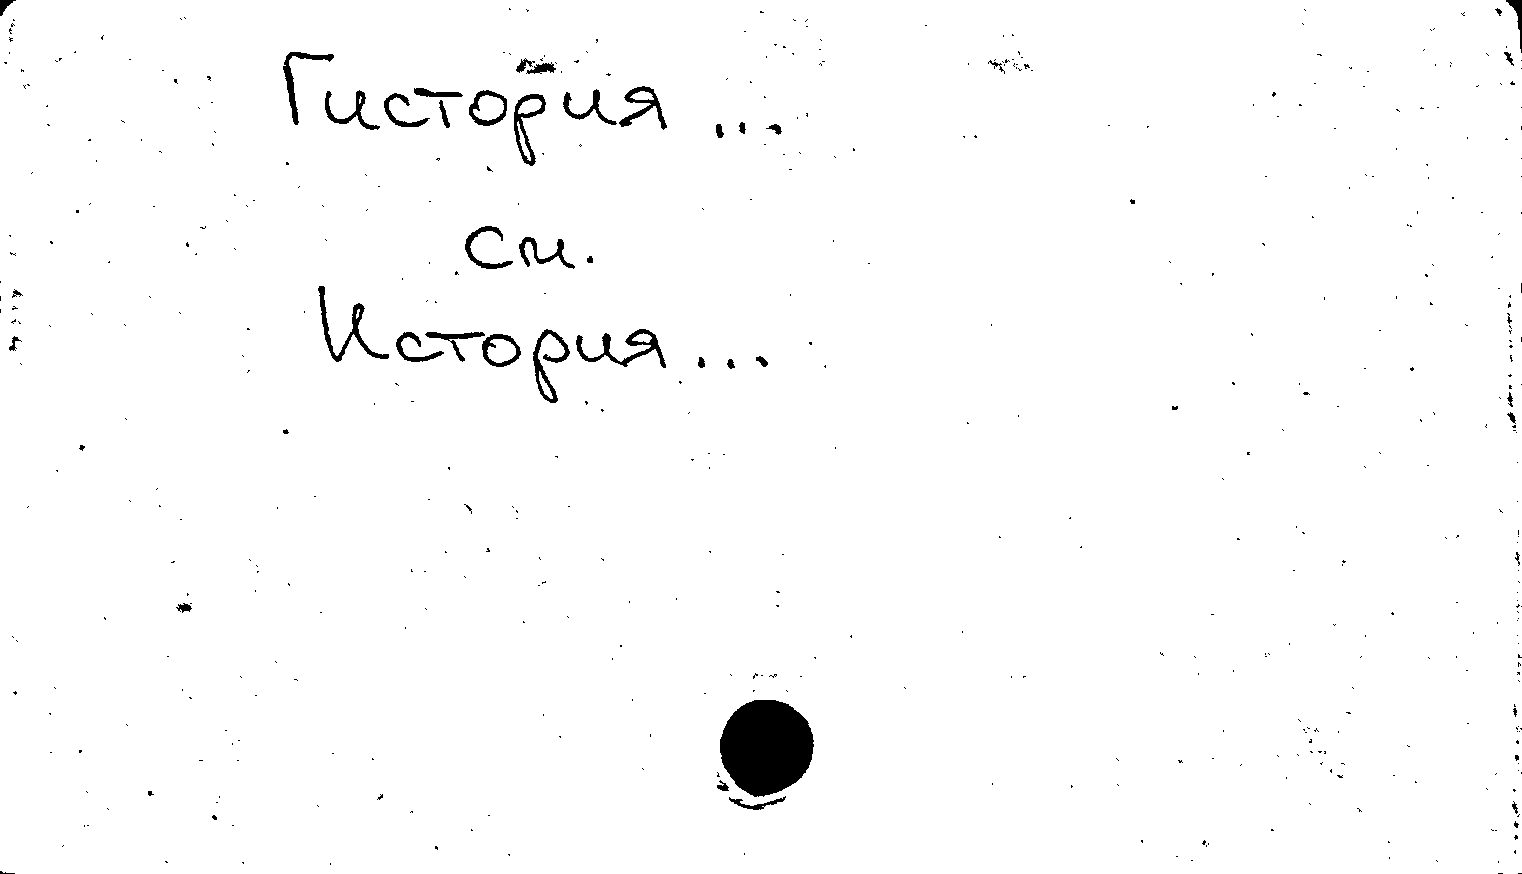 Гистория ...
см.
История ...